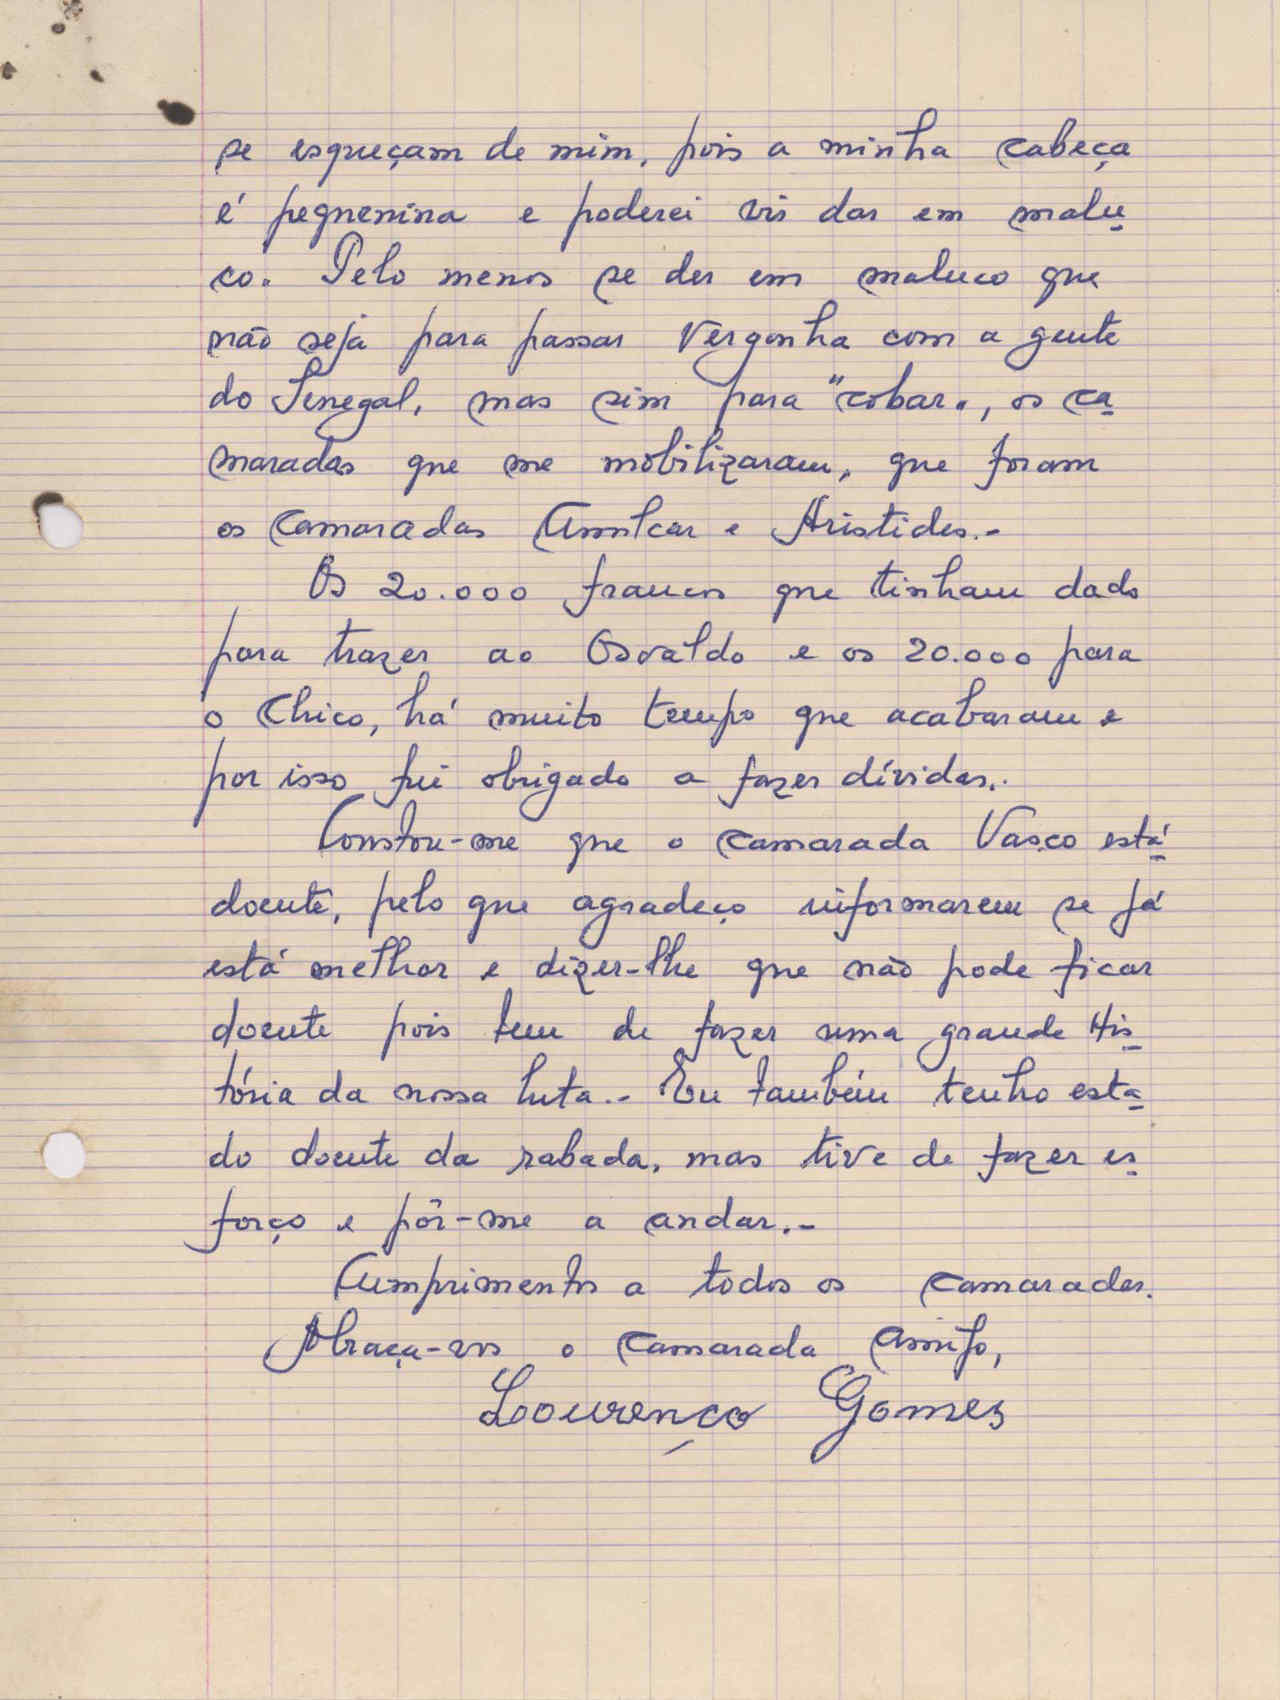 se esqueçam de mim, pois a minha cabeça
é pequenina e poderei vir dar em malu
co. Pelo menos se der em maluco que
não seja para passar vergonha com a gente
do Senegal, mas sim para "cobar", os ca
maradas que me mobilizaram, que foram
os camaradas Amilcar e Aristides.-
Os 20.000 francos que tinham dado
para trazer ao Osvaldo e os 20.000 para
o Chico, há muito tempo que acabaram e
por isso fui obrigado a fazer dívidas..
Constou-me que o camarada Vasco está
doente, pelo que agradeço informarem se já
está melhor e dizer-lhe que não pode ficar
doente pois tem de fazer uma grande His
tória da nossa luta.- Eu também tenho esta
do doente da rabada, mas tive de fazer es
forço e pôr-me a andar.-
Cumprimentos a todos os camaradas.
Abraça-vos o camarada amigo,
Lourenço Gomes